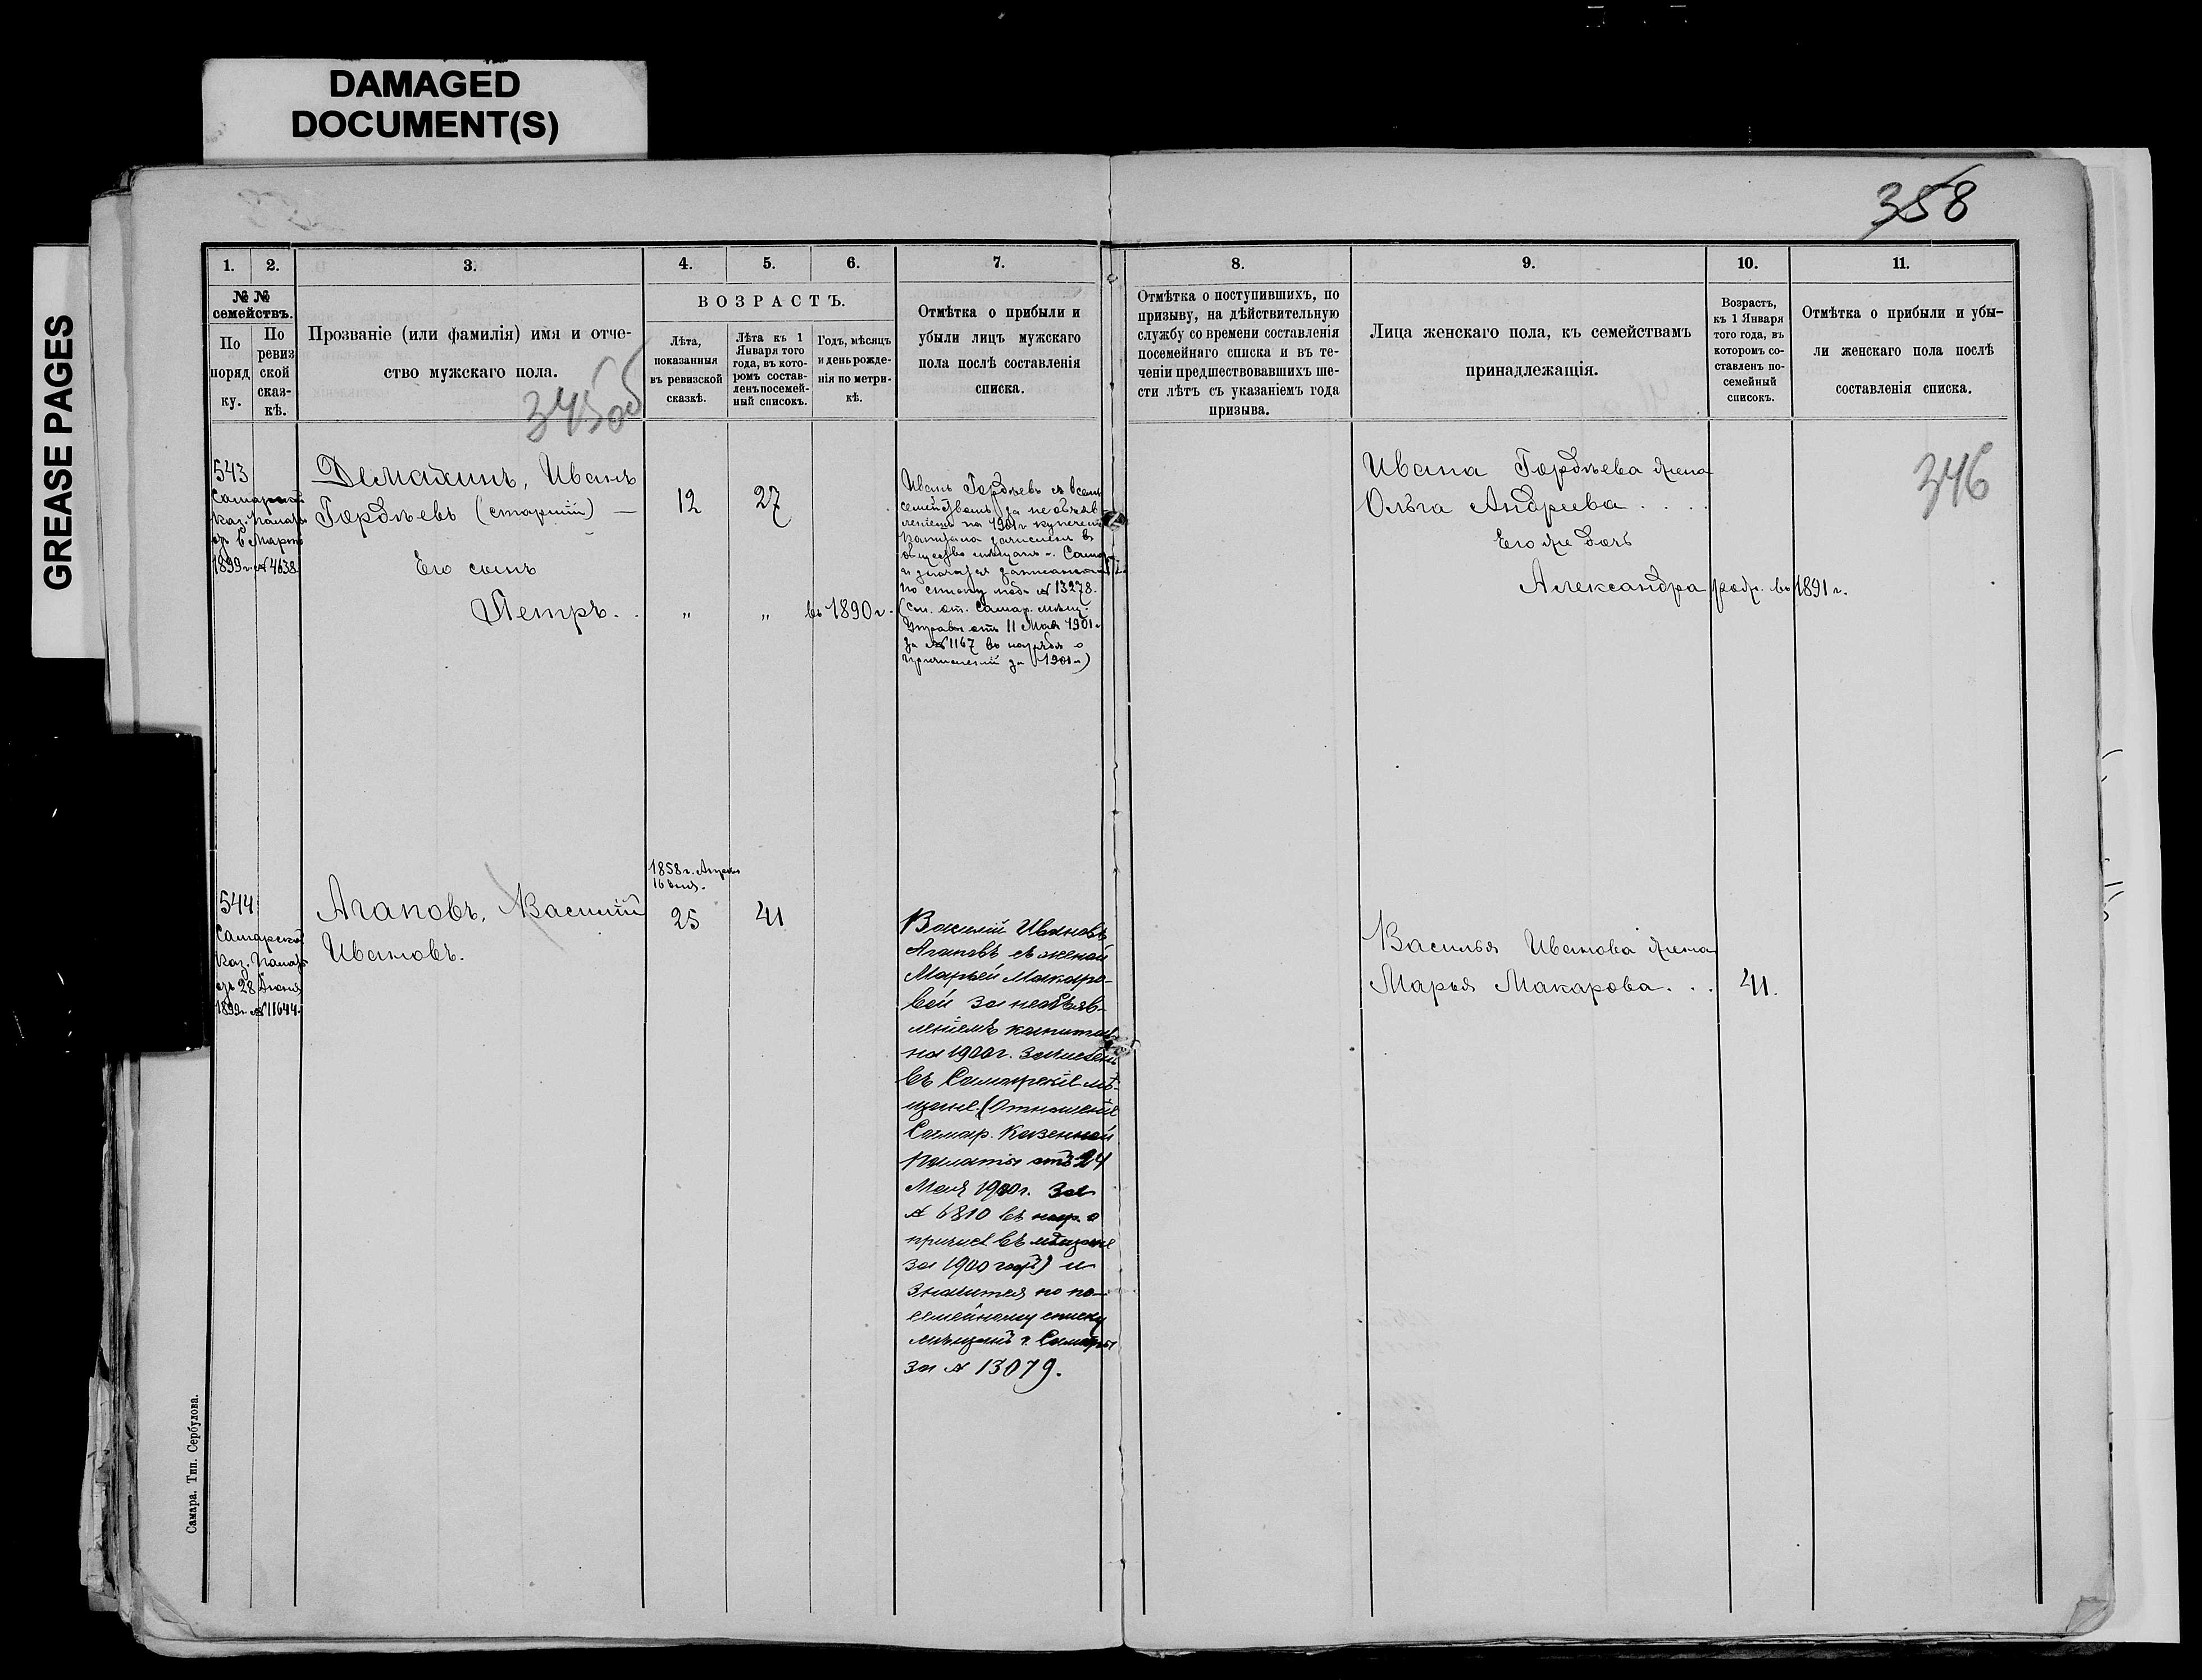 DAMAGED
DOCUMENT(S)
GREASE PAGES
358
1. 2. 3. 4. 5. 6. 7. 8. 9. 10. 11.
№ №
семействъ.
По
поряд
ку.
По
ревиз
ской
сказ-
кѣ.
Прозваніе (или фамилія) имя и отче-
ство мужскаго пола.
345об
ВОЗРАСТЪ.
Лѣта,
показанныя
въ ревизской
сказкѣ.
Лѣта къ 1
Января того
года, въ кото-
ромъ состав-
ленъ посемей-
ный списокъ.
Годъ, мѣсяцъ
и день рожде-
нія по метри-
кѣ.
Отмѣтка о прибыли и
убыли лицъ мужскаго
пола послѣ составленія
списка.
Отмѣтка о поступившихъ, по
призыву, на дѣйствительную
службу со времени составленія
посемейнаго списка и въ те-
ченіи предшествовавшихъ ше-
сти лѣтъ съ указаніемъ года
призыва.
Лица женскаго пола, къ семействамъ
принадлежащія.
Возрастъ,
къ 1 Января
того года, въ
которомъ со-
ставленъ по-
семейный
списокъ.
Отмѣтка о прибыли и убы-
ли женскаго пола послѣ
составленія списка.
346
543
Самарской
Каз. Палаты
6 Марта
1899 г. № 4638
Иванъ
Гордѣевъ (старшій) —
12
27
Его сынъ
Петръ. .
„
„
въ 1890 г.
Иванъ Гордѣевъ съ всемъ
семействомъ за необъяв-
леніемъ на 1901 г. купеческ
капитала зачисленъ въ
общество мѣщанъ г. Самары
№ 13278.
(Сн. от. Самар. мѣщ.
Управы отъ 11 Мая 1901 г.
за № 1167 въ нарядѣ о
причисленій за 1901 г.)
Ивана Гордѣева жена
Ольга Андреева . . . .
Его же дочь
Александра род. въ 1891 г.
544
Самарской
Каз. Палаты
28 Іюня
1899 г. № 11644.
Агаповъ, Василій
Ивановъ.
1858 г. Апрѣля
16 дня.
25
41
Василій Ивановъ
Агаповъ съ женой
Марьей Макаро-
вой за необъяв-
леніемъ капитала
на 1900 г. зачисленъ
въ Самарскіе мѣ-
щане. (Отношеніе
Самар. Казенной
Палаты отъ 24
Мая 1900 г. за
№ 6810 въ нар. о
причисл. въ мѣщане
за 1900 годъ) и
значится по по-
семейному списку
мѣщанъ г. Самары
за № 13079.
Василья Иванова жена
Марья Макарова. . . 41.
Самара. Тип. Сербулова.